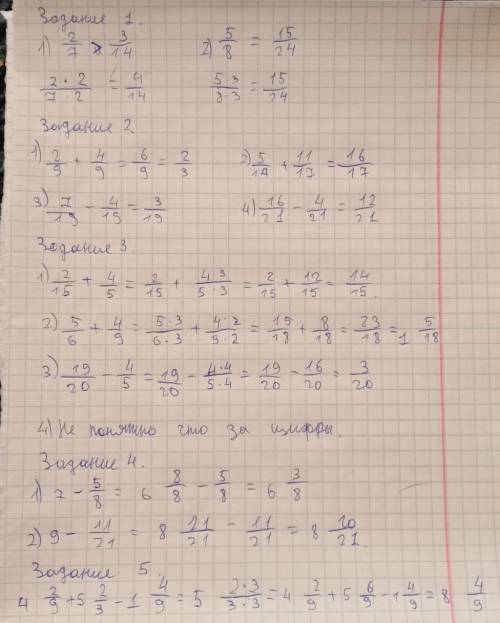 Задание 1.
1) 2/7 > 3/14 2) 5/8 = 15/24
2·2/7·2 = 4/14 5·3/8·3 = 15/24
Задание 2
1) 2/9 + 4/9 = 6/9 = 2/3 2) 5/17 + 11/17 = 16/17
3) 7/19 - 4/19 = 3/19 4) 16/21 - 4/21 = 12/21
Задание 3
1) 2/15 + 4/5 = 2/15 + 4·3/5·3 = 2/15 + 12/15 = 14/15.
2) 5/6 + 4/9 = 5·3/6·3 + 4·2/9·2 = 15/18 + 8/18 = 23/18 = 1 5/18
3) 19/20 - 4/5 = 19/20 - 4·4/5·4 = 19/20 - 16/20 = 3/20
4) Не понятно что за цифры.
Задание 4.
1) 7 - 5/8 = 6 8/8 - 5/8 = 6 3/8
2) 9 - 11/21 = 8 21/21 - 11/21 = 8 10/21.
Задание 5.
4 2/9 + 5 2/3 - 1 4/9 = 5 2·3/3·3 = 4 2/9 + 5 6/9 - 1 4/9 = 8 4/9